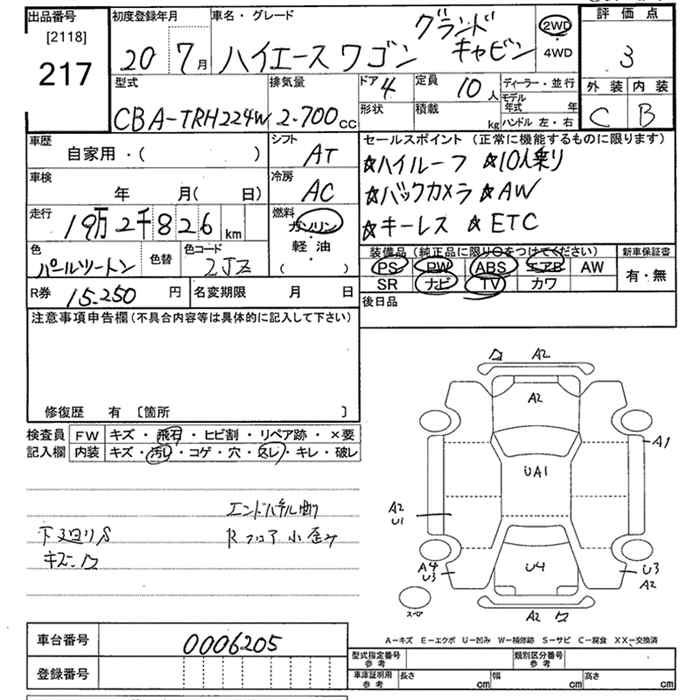 出品番号 初度登録年月 車名・グレード 評価点
[2118]
217
20 7月 ハイエースワゴン グランドキャビン 2WD 3
4WD
型式 排気量 ドア 4 定員 10人 ディーラー・並行 外装 内装
モデル年式 年
CBA-TRH224W 2.700cc 形状 積載 kg ハンドル 左・右 C B
車歴 シフト セールスポイント (正常に機能するものに限ります)
自家用・( ) AT ☆ハイルーフ ☆10人乗り
車検 冷房 ☆バックカメラ ☆AW
年 月( 日) AC ☆キーレス ☆ETC
走行 燃料
19万2千826km ガソリン
軽・油
・( )
色 色替 色コード 装備品 (純正品に限り○をつけてください) 新車保証書
パールツートン 2JZ PS PW ABS エアB AW 有・無
SR ナビ TV カワ
R券 15.250円 名変期限 月 日 後日品
注意事項申告欄(不具合内容等は具体的に記入して下さい)
修復歴 有 [箇所 ]
検査員 FW キズ・飛石・ヒビ割・リペア跡・×要
記入欄 内装 キズ・汚レ・コゲ・穴・スレ・キレ・破レ
エンドパネル曲り
下廻りS Rフロア小歪み
キズ
A2
A2
A1
UA1
A2
U1
A4
U3
U4
U3
A2
A2
A-キズ E-エクボ U-凹み W-補修跡 S-サビ C-腐食 XX-交換済
車台番号 0006205
登録番号
型式指定番号 参考 類別区分番号 参考
車庫証明用 参考 長さ cm 幅 cm 高さ cm